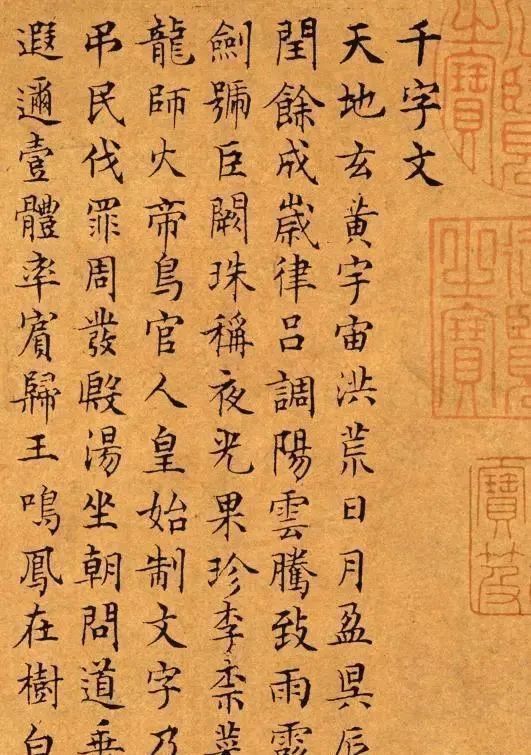 千字文
天地玄黃宇宙洪荒日月盈昃辰
閏餘成歲律呂調陽雲騰致雨露
劍號巨闕珠稱夜光果珍李柰菜
龍師火帝鳥官人皇始制文字乃
吊民伐罪周發殷湯坐朝問道垂
遐邇壹體率賓歸王鳴鳳在樹白
之寶
之寶
寶笈